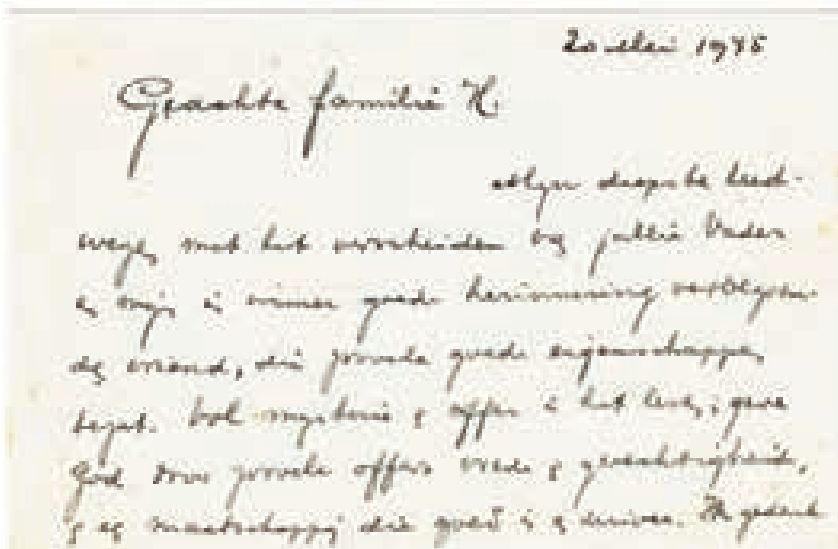 20 Mei 1945
Geachte familie H.
Mijn diepste leed-
wezen met het verscheiden van jullie Vader
en mijn in immer goede herinnering verblijven-
de vriend, die zoovele goede eigenschappen
bezat. Vol mysterie & offer is het leven; geve
God door zoovele offers vrede & gerechtigheid,
& een maatschappij die goed is &. Ik gedenk